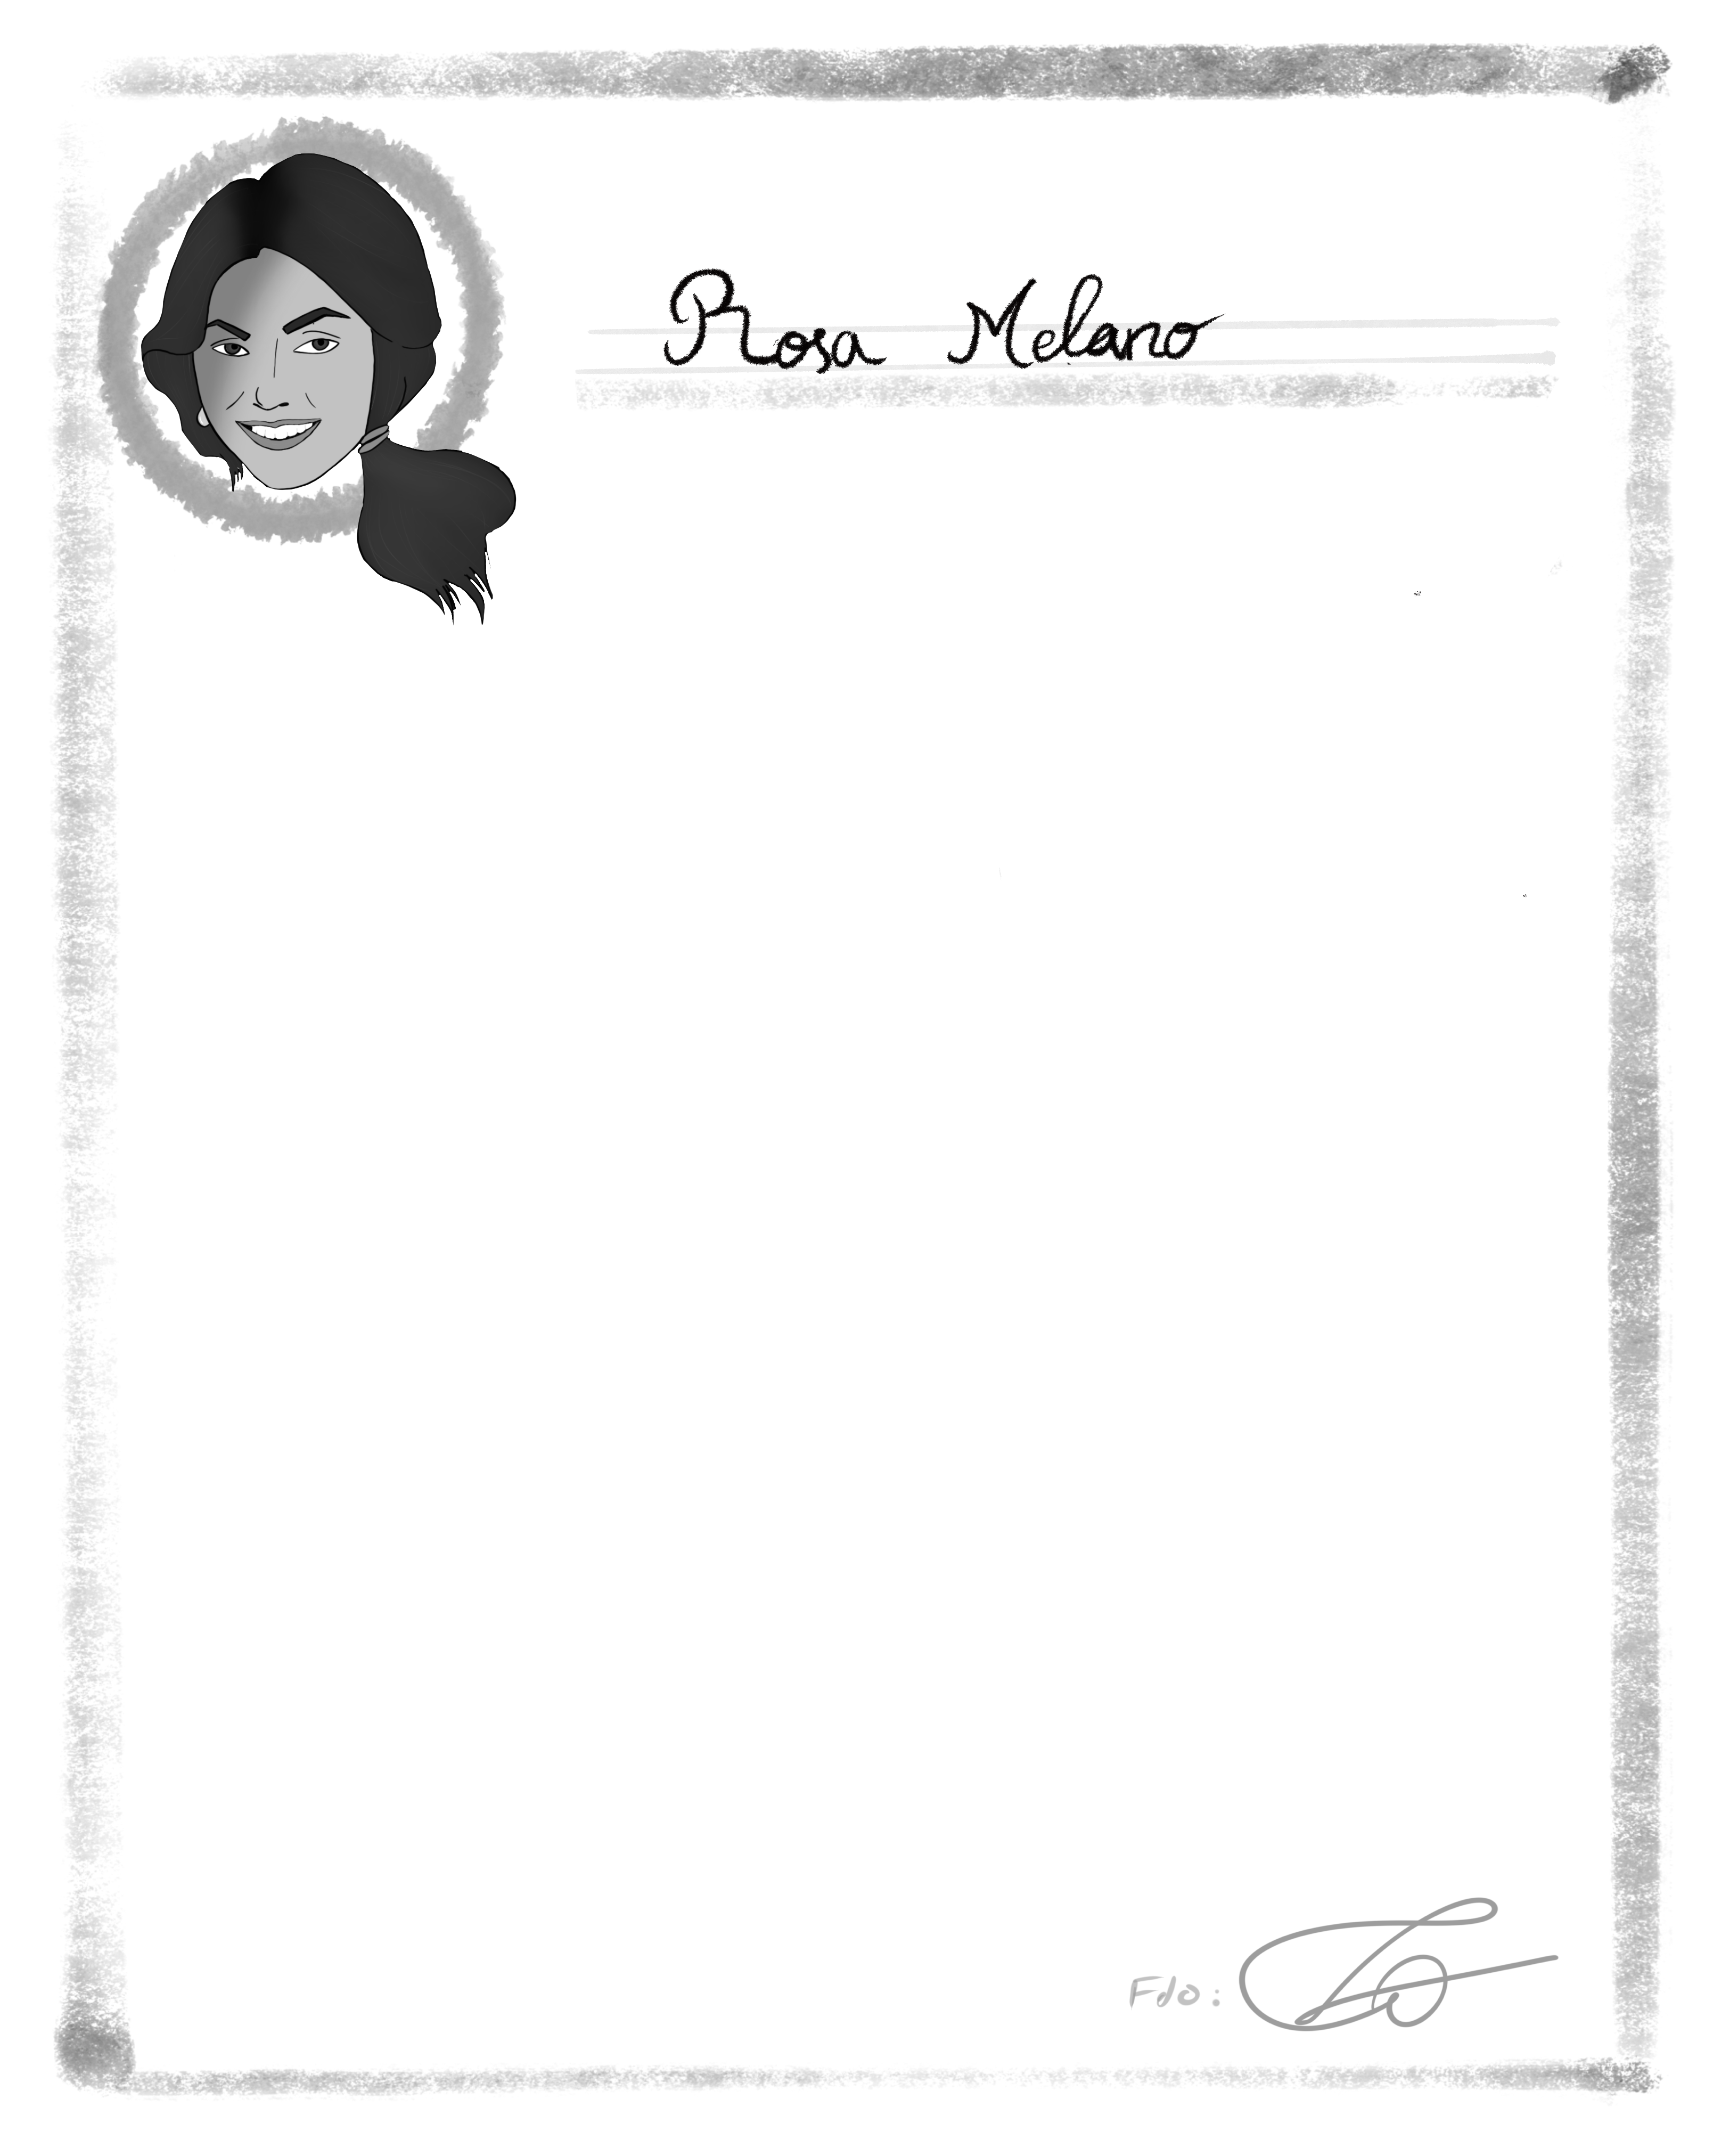 Rosa Melano
Fdo: